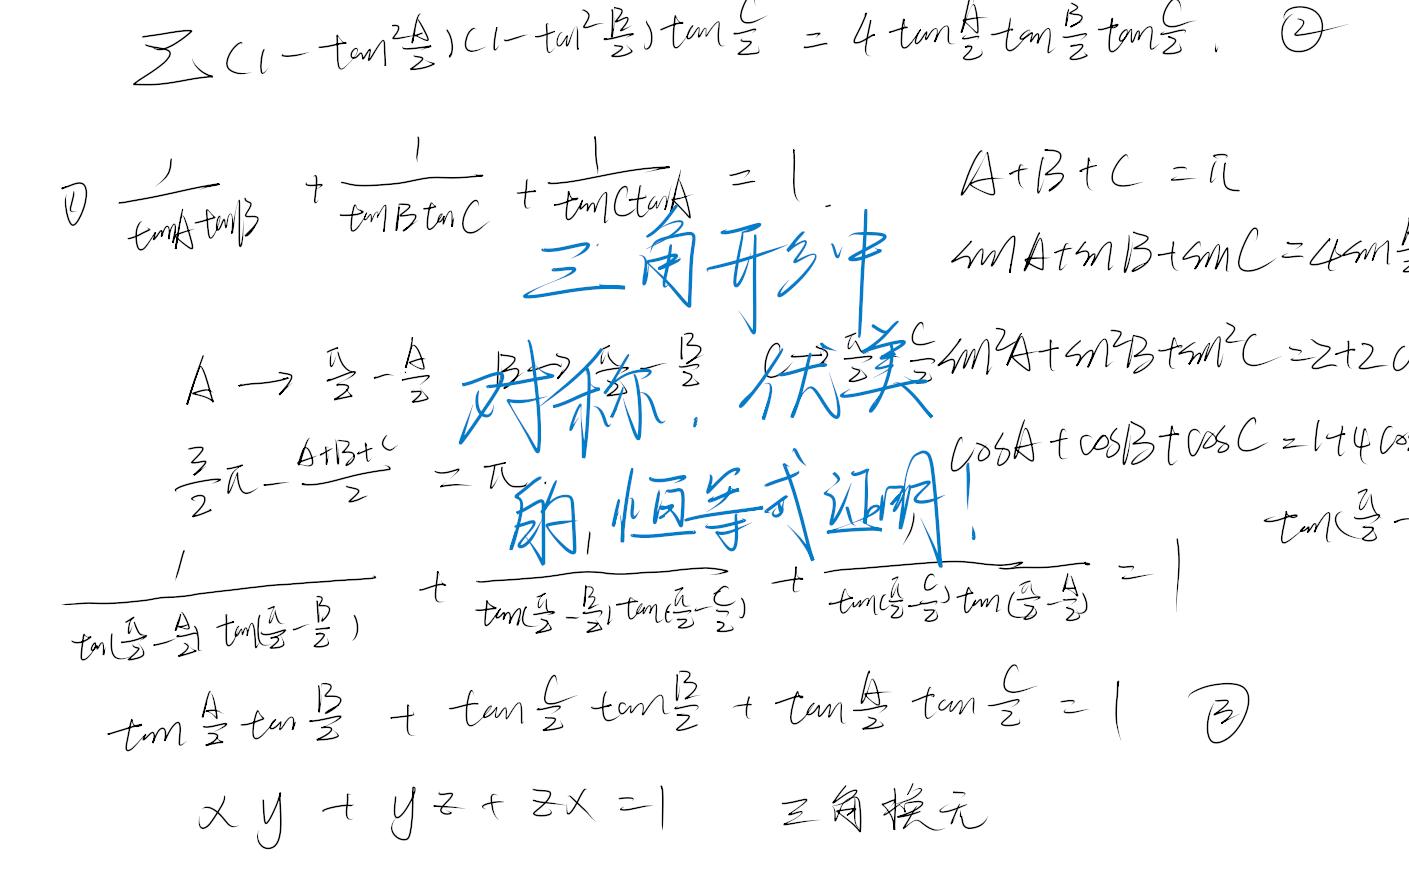 ∑(1-tan²A/2)(1-tan²B/2)tan C/2 = 4 tan A/2 tan B/2 tan C/2 . ②
① 1/(tanA tanB) + 1/(tanB tanC) + 1/(tanC tanA) = 1 .
A+B+C = π
sinA+sinB+sinC=4sin
A → π/2 - A/2 B → π/2 - B/2 C → π/2 - C/2
sin²A+sin²B+sin²C=2+2c
3/2 π - (A+B+C)/2 = π
cosA+cosB+cosC=1+4cos
tan(π/2 -
1/(tan(π/2 - A/2) tan(π/2 - B/2)) + 1/(tan(π/2 - B/2) tan(π/2 - C/2)) + 1/(tan(π/2 - C/2) tan(π/2 - A/2)) = 1
tan A/2 tan B/2 + tan C/2 tan B/2 + tan A/2 tan C/2 = 1 ③
xy + yz + zx = 1 三角换元
三角形中
对称，优美
的恒等式证明！